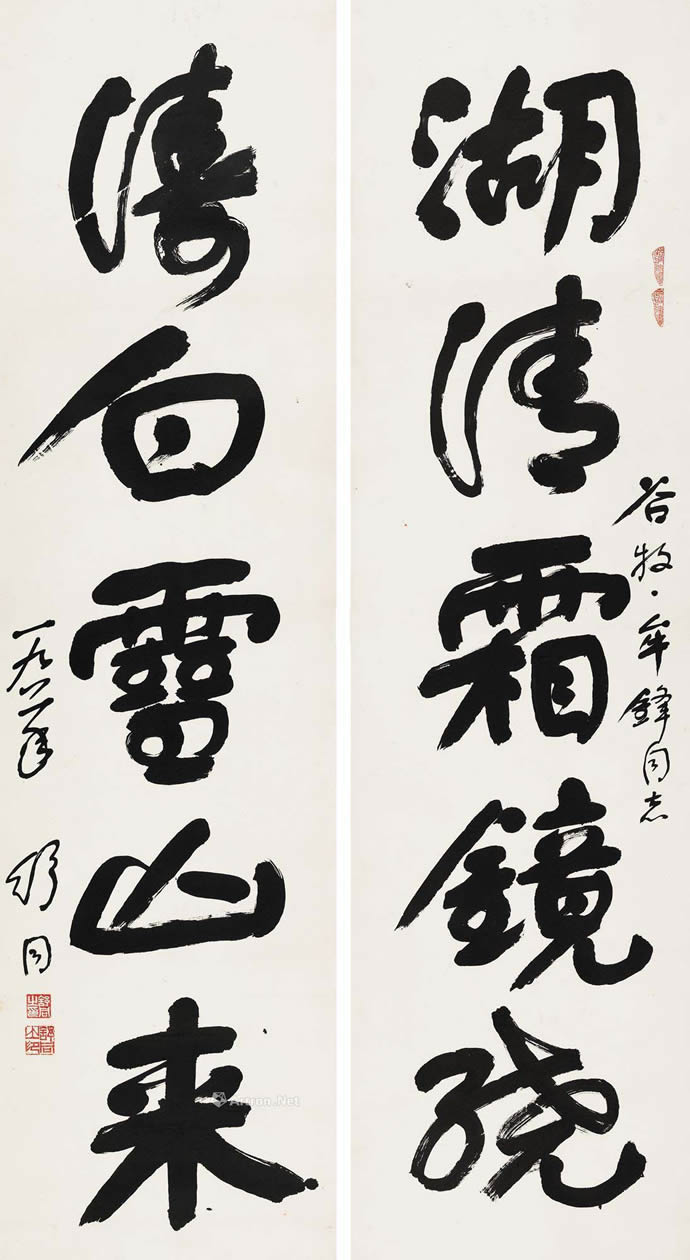 湖清霜鏡绕
谷牧·牟鋒同志
濤白雪山来
一九八一年 舒同
Artron.Net